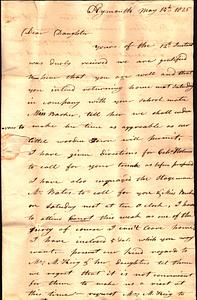 Plymouth May 14th 1825
Dear Daughter
yours of the 12th Instant
was duely received we are gratified
to hear that you are well and that
you intend returning home next Saturday
in company with your school mate
Miss Barker, tell her we shall indea
vour to make her time as agreeable as our
little wooden Town will permit,
I have given directions for Capt Holmes
to call for your trunk as before proposed
I have also engaged the Stageman
Mr Bates to call for you & Miss Barker
on Saturday next at ten o clock, I have
to attend this week as one of the
jury of course I can't leave home,
I have inclosed 2 dols which you may
want, present our kind regards to
Mrs M King & her daughters at them
we regret that it is not convenient
for them to make us a visit at
this time request Mrs M King to